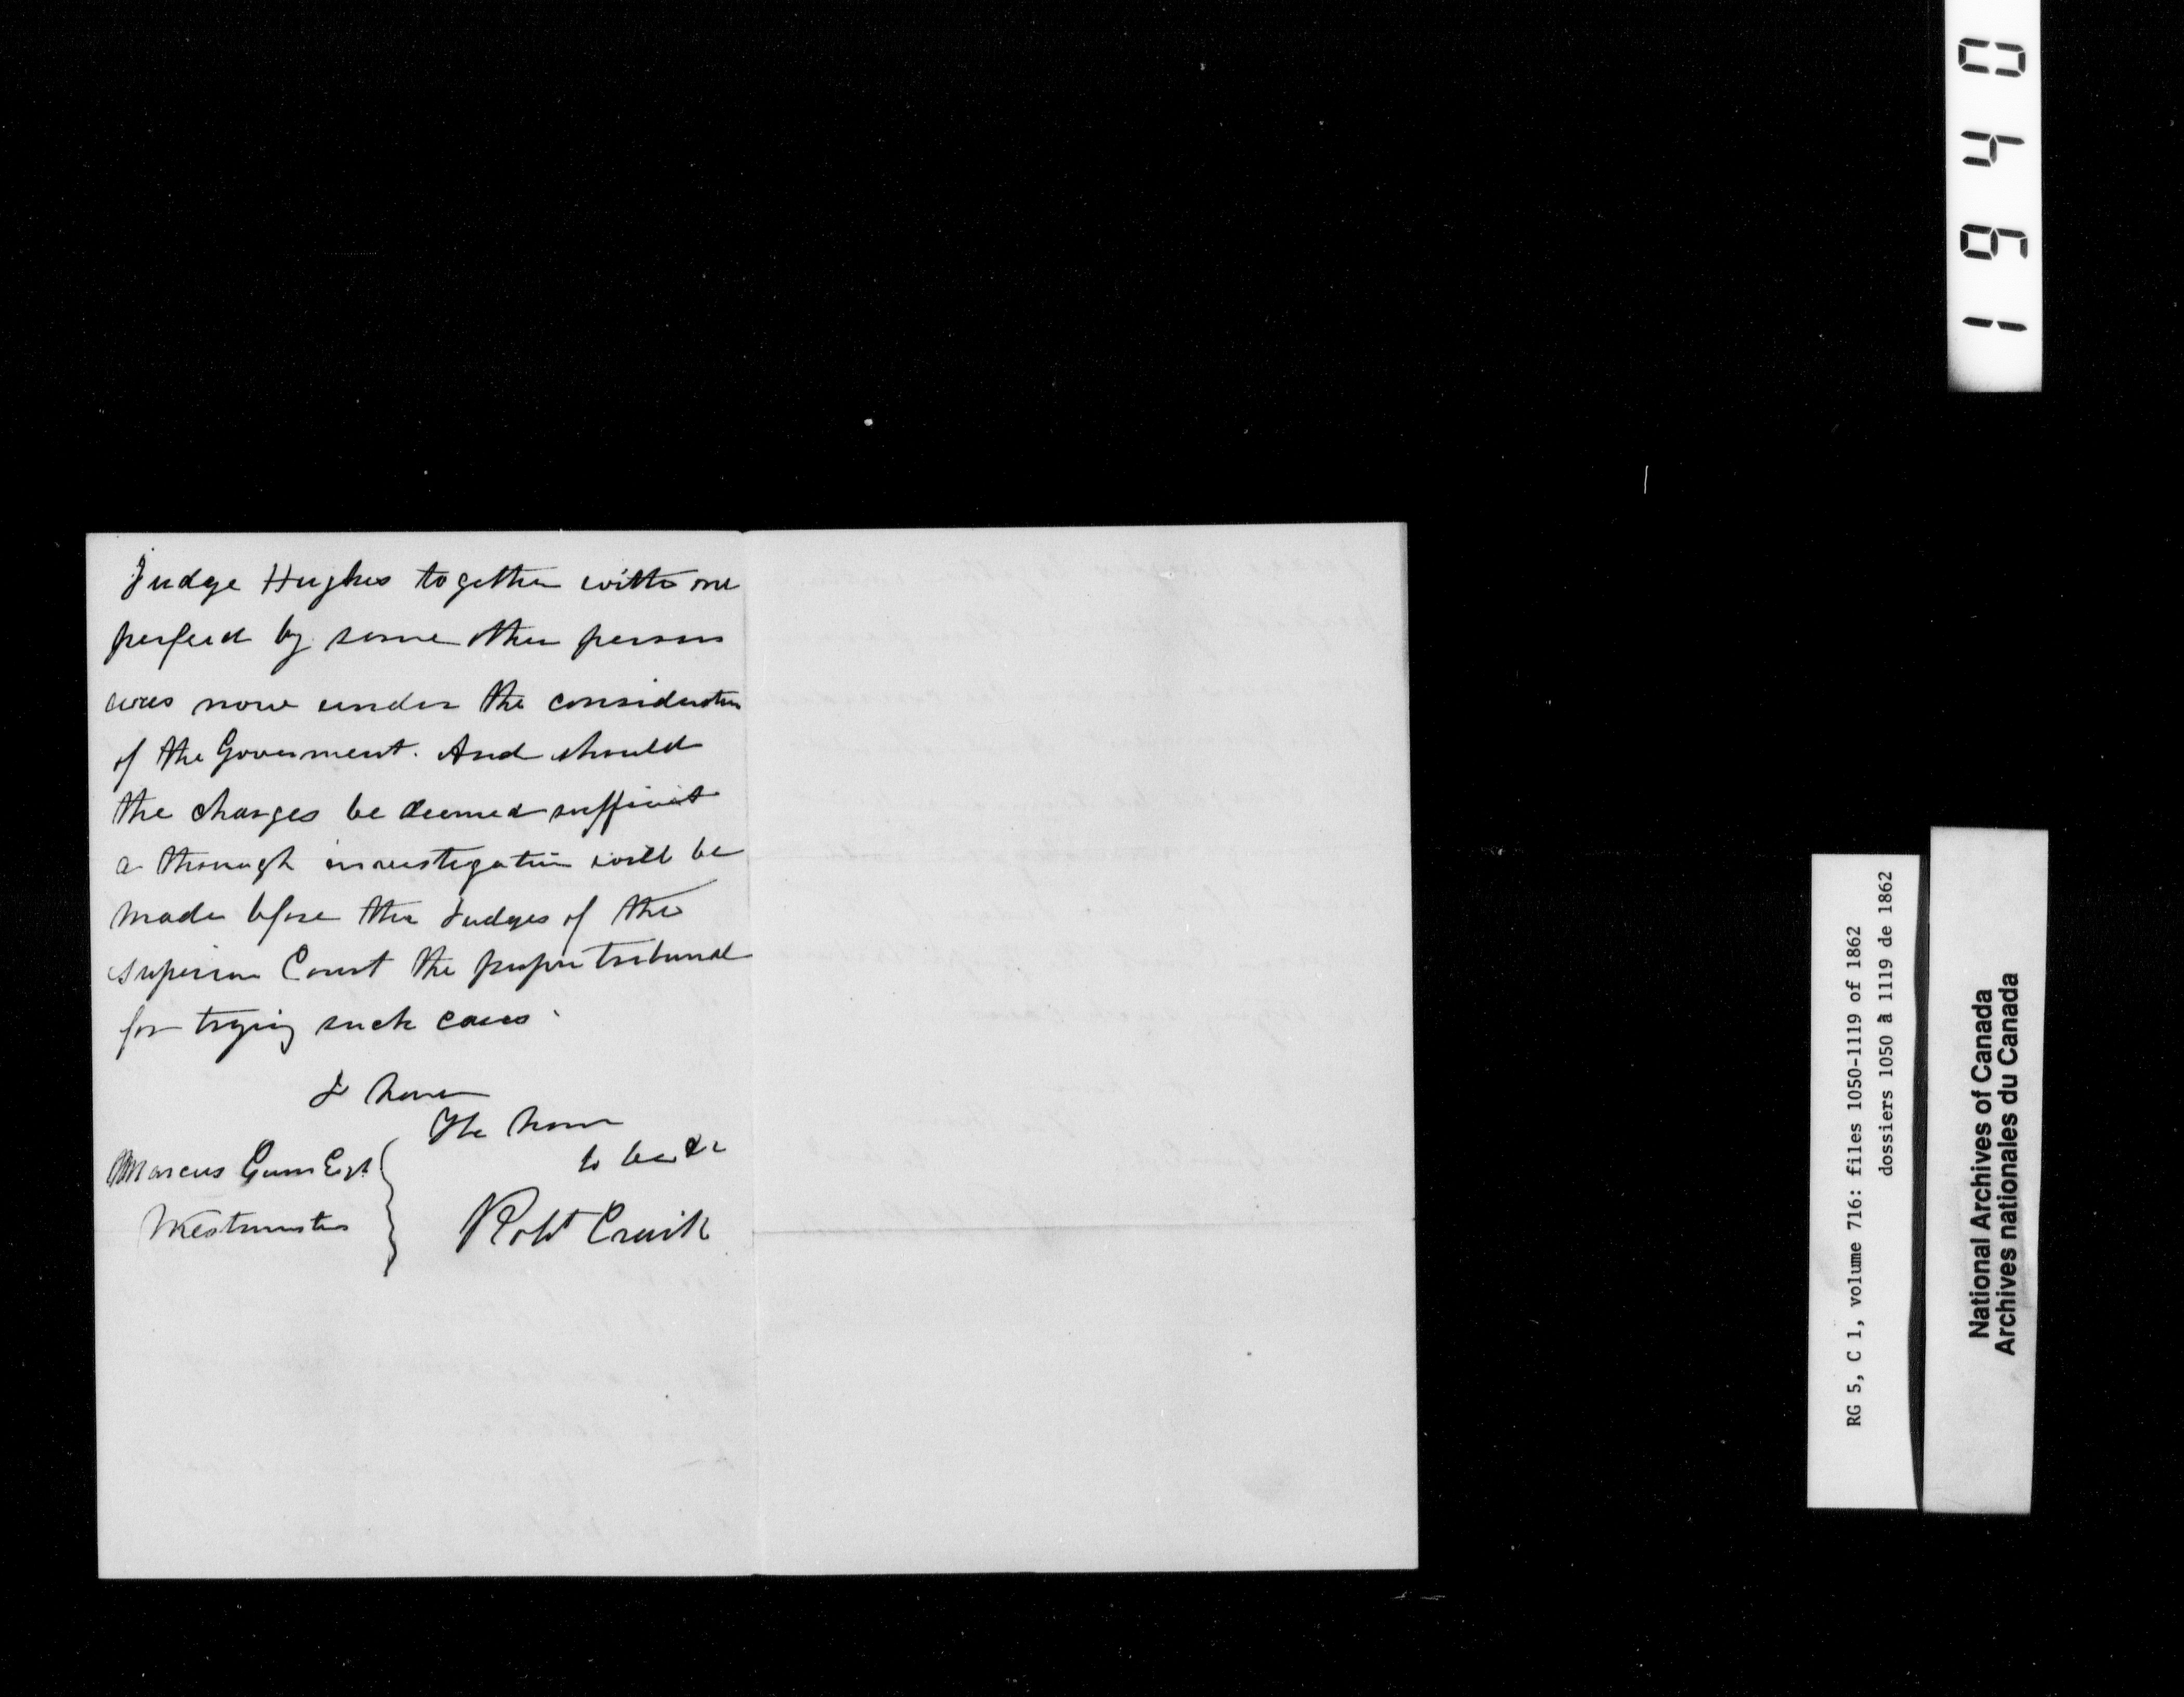 Judge Hughes together with one
perfered by some other person
was now under the consideration
of the Goverment. And should
the charges be deemed sufficient
a through investigation will be
made before the Judges of the
superior Court the proper tribunal
for trying such cases.
I have
The honor
to be &c
Marcus Gunn Esqr
Westminster
Robt Craik
0491
RG 5, C 1, volume 716: files 1050-1119 of 1862
dossiers 1050 à 1119 de 1862
National Archives of Canada
Archives nationales du Canada